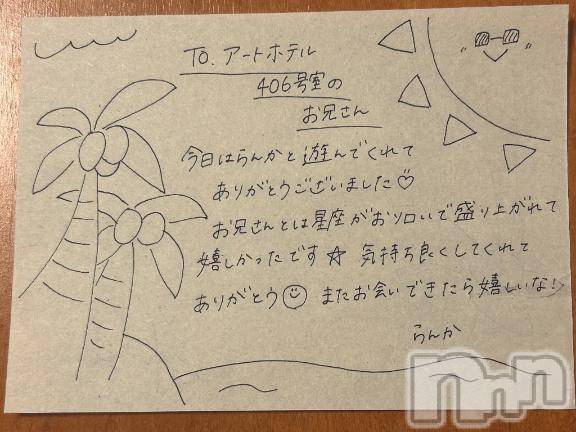 To. アートホテル
406号室の
お兄さん
今日はらんかと遊んでくれて
ありがとうございました♡
お兄さんとは星座がおソロいで盛り上がれて
嬉しかったです☆ 気持ち良くしてくれて
ありがとう☺ またお会いできたら嬉しいな!
らんか
nnn